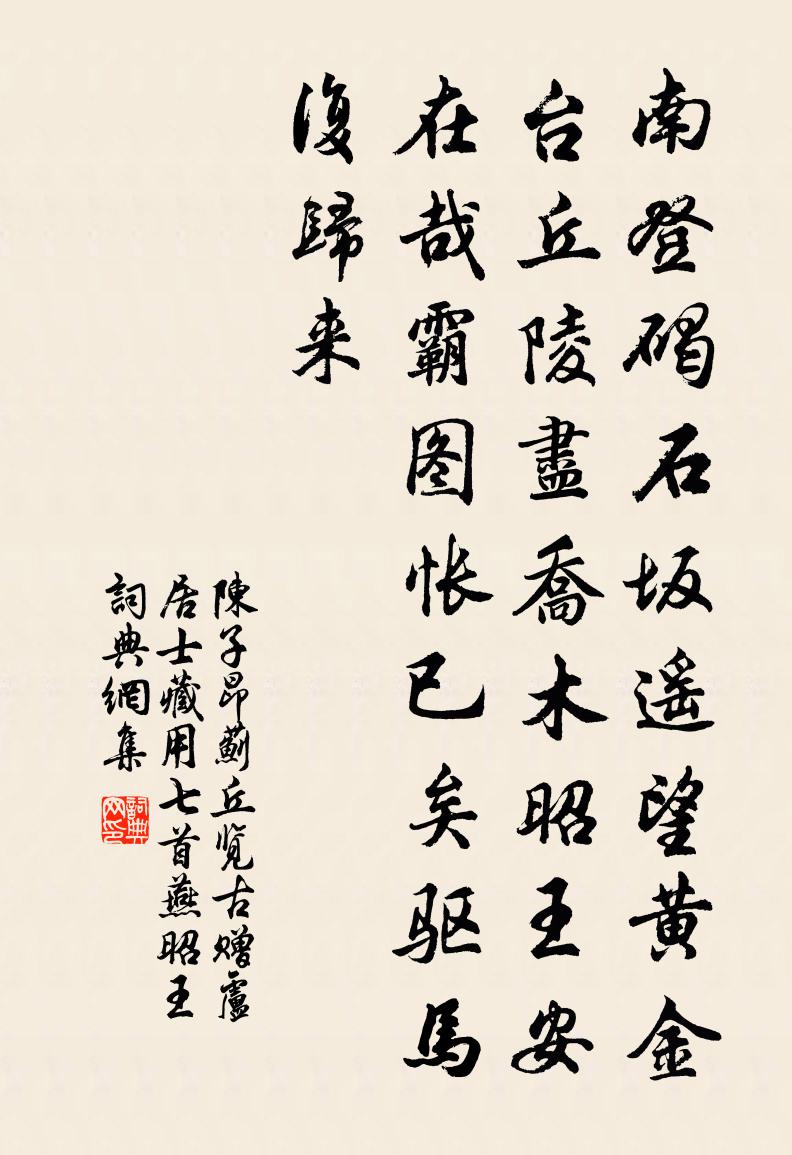 南登碣石坂遥望黄金
台丘陵盡喬木昭王安
在哉霸图怅已矣驱馬
復歸来
陳子昂薊丘览古贈盧
居士藏用七首燕昭王
詞典網集
詞典网印